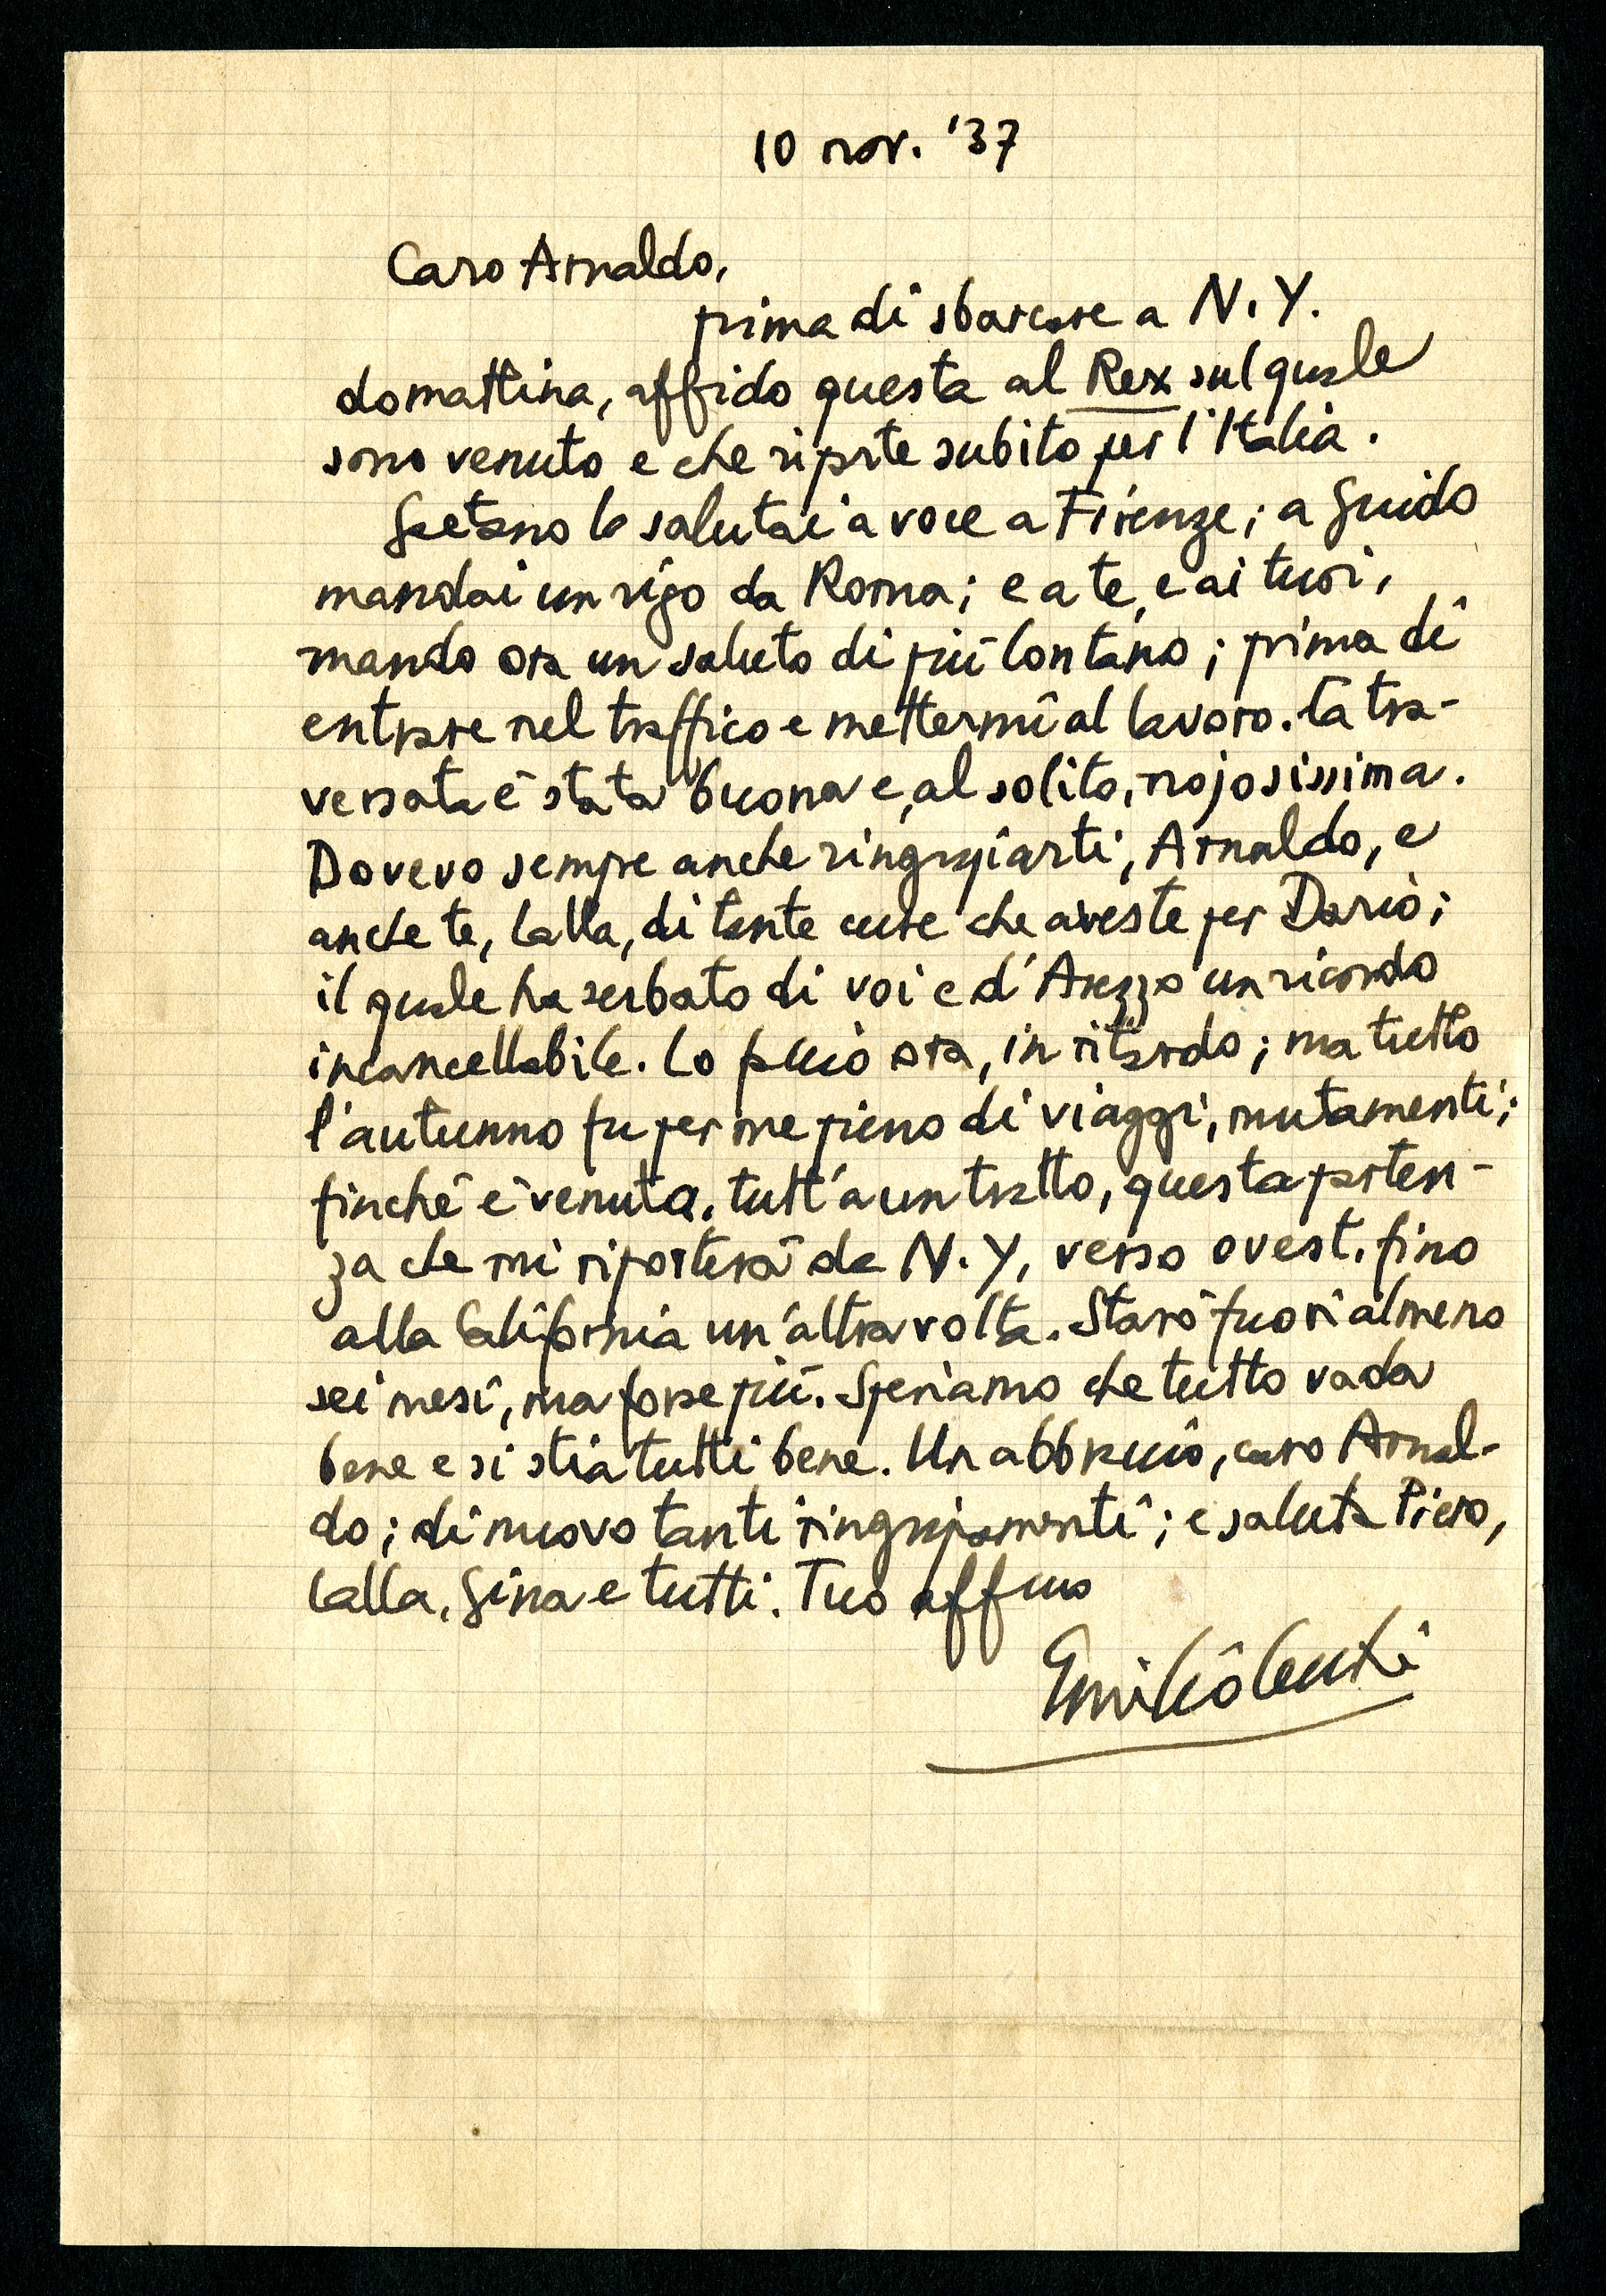 10 nov. '37
Caro Arnaldo,
prima di sbarcare a N.Y.
domattina, affido questa al Rex sul quale
sono venuto e che riparte subito per l'Italia.
Gaetano lo salutai a voce a Firenze; a Guido
mandai un rigo da Roma; e a te, e ai tuoi,
mando ora un saluto di più lontano; prima di
entrare nel traffico e mettermi al lavoro. La tra-
versata è stata buona e, al solito, nojosissima.
Dovevo sempre anche ringraziarti, Arnaldo, e
anche te, Lalla, di tante cure che aveste per Dario;
il quale ha serbato di voi e d'Arezzo un ricordo
incancellabile. Lo faccio ora, in ritardo; ma tutto
l'autunno fu per me pieno di viaggi, mutamenti;
finchè è venuta, tutt'a un tratto, questa parten-
za che mi riporterà da N.Y, verso ovest, fino
alla California un'altra volta. Starò fuori almeno
sei mesi, ma forse più. Speriamo che tutto vada
bene e si stia tutti bene. Un abbraccio, caro Arnal-
do; di nuovo tanti ringraziamenti; e saluta Piero,
Lalla, Gina e tutti. Tuo aff
Emilio Cecchi